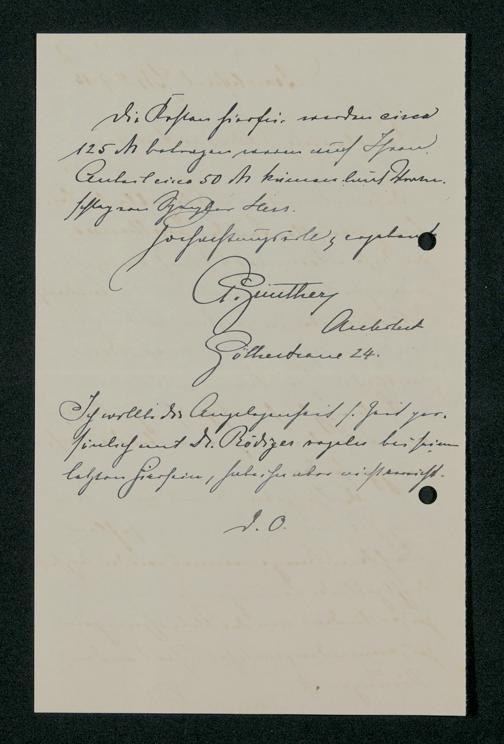 Die Kosten hierfür werden circa
125 M betragen wovon auf Ihren
Anteil circa 50 M kommen laut
Hochachtungsvoll ergebenst
A. Günther
Architect
Göthestrasse 24.
Ich wollte die Angelegenheit s. Zeit per-
sönlich mit Dr. Rödiger regeln bei seinem
letzten Hiersein, habe ihn aber nicht erreicht.
D. O.